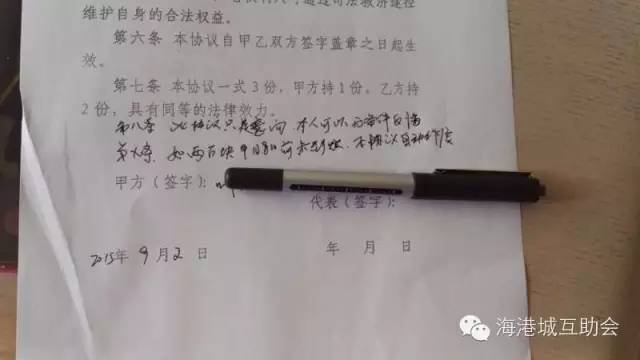 维护自身的合法权益。
第六条 本协议自甲乙双方签字盖章之日起生
效。
第七条 本协议一式3份，甲方持1份。乙方持
2份，具有同等的法律效力。
第八条 此协议只是意向 本人可以无条件
第九条 如 9月 本协议自动作废
甲方（签字）：
代表（签字）：
2015年 9月 2 日
年 月 日
海港城互助会